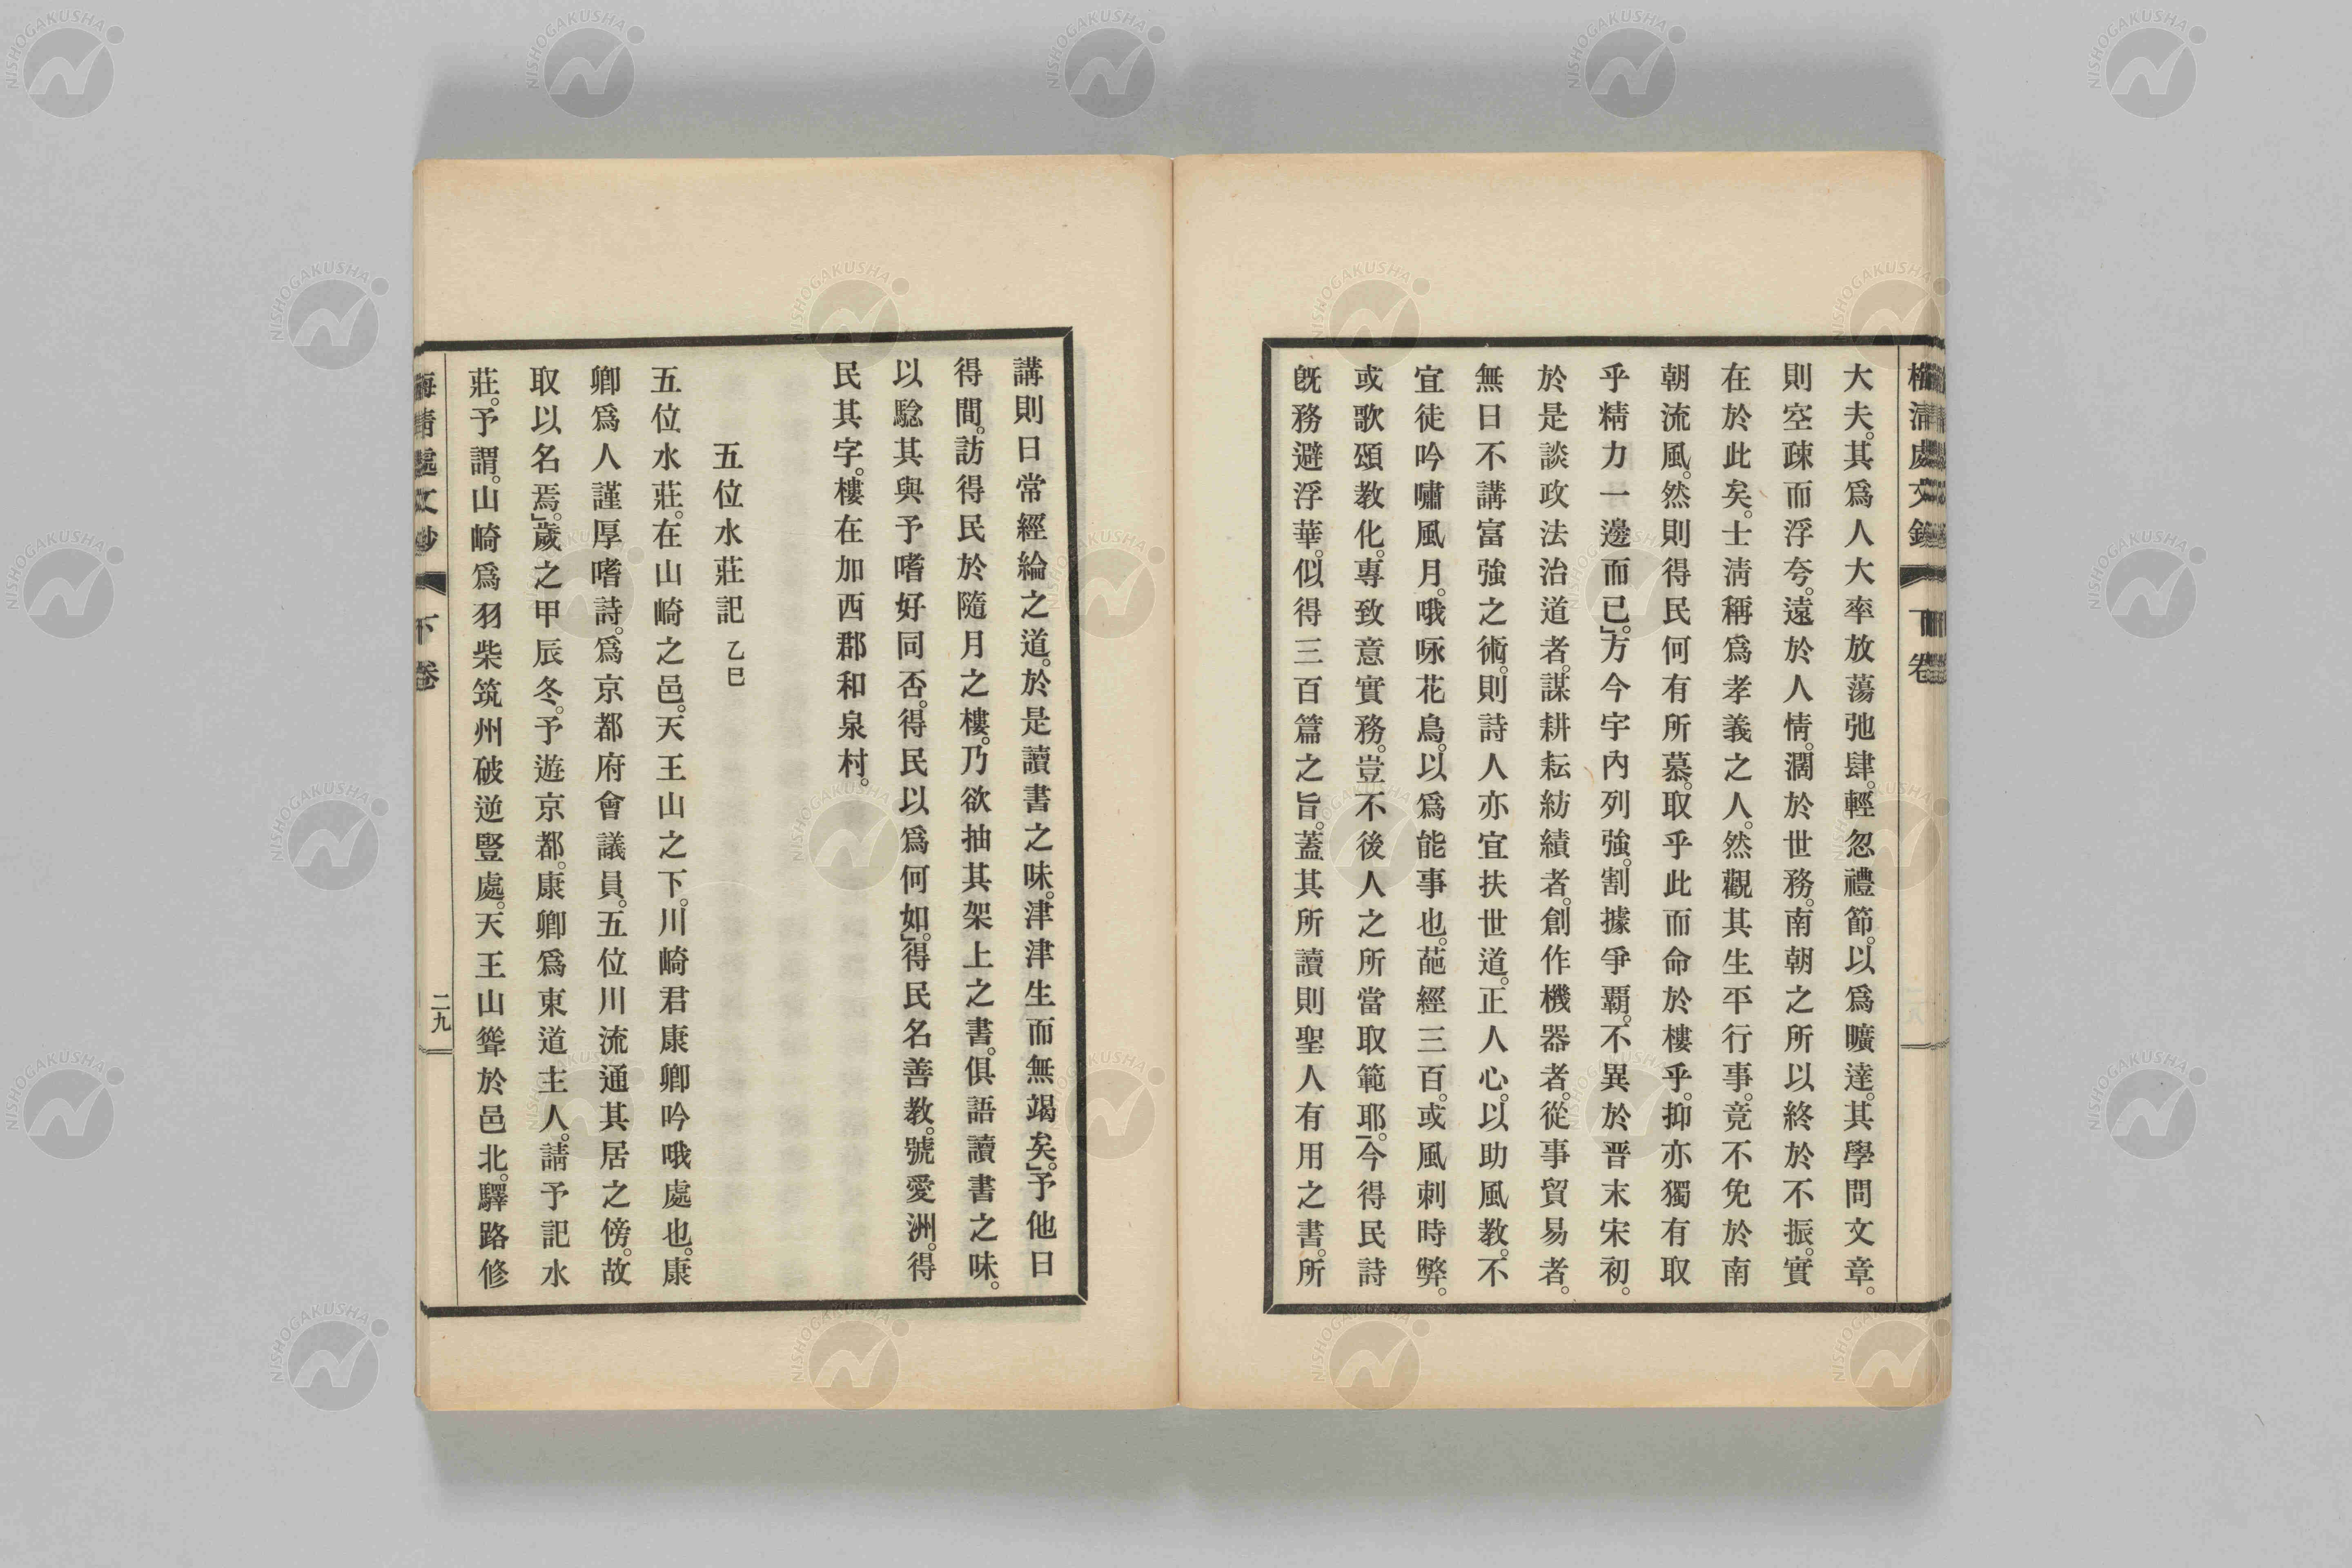 大夫。其爲人大率放蕩弛肆。輕忽禮節。以爲曠達。其學問文章。
則空疎而浮夸。遠於人情。濶於世務。南朝之所以終於不振。實
在於此矣。士淸稱爲孝義之人。然觀其生平行事。竟不免於南
朝流風。然則得民何有所慕。取乎此而命於樓乎。抑亦獨有取
乎精力一邊而已。」方今宇內列強。割據爭覇。不異於晋末宋初。
於是談政法治道者。謀耕耘紡績者。創作機器者。從事貿易者。
無日不講富強之術。則詩人亦宜扶世道。正人心。以助風教。不
宜徒吟嘯風月。哦咏花鳥。以爲能事也。葩經三百。或風刺時弊。
或歌頌教化。專致意實務。豈不後人之所當取範耶。」今得民詩
既務避浮華。似得三百篇之旨。蓋其所讀則聖人有用之書。所
講則日常經綸之道。於是讀書之味。津津生而無竭矣。」予他日
得間。訪得民於隨月之樓。乃欲抽其架上之書。俱語讀書之味。
以驗其與予嗜好同否。得民以爲何如。」得民名善教。號愛洲。得
民其字。樓在加西郡和泉村。
五位水莊記 乙巳
五位水莊。在山崎之邑。天王山之下。川崎君康卿吟哦處也。康
卿爲人謹厚嗜詩。爲京都府會議員。五位川流通其居之傍。故
取以名焉。」歲之甲辰冬。予遊京都。康卿爲東道主人。請予記水
莊。予謂。山崎爲羽柴筑州破逆豎處。天王山聳於邑北。驛路修
梅淸處文鈔 下卷 二九